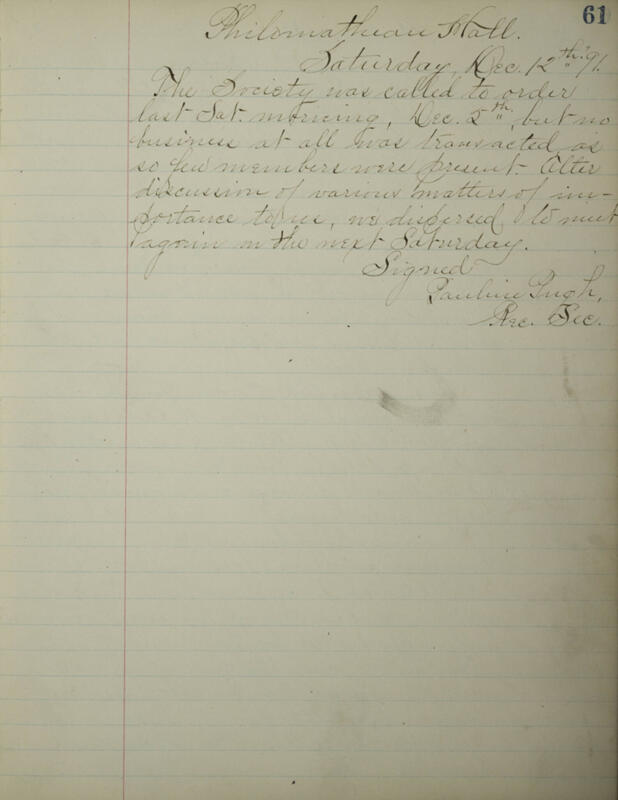 61
Philomathean Hall.
Saturday, Dec. 12th '91.
The Society was called to order
last Sat. morning, Dec. 5th, but no
business at all was transacted as
so few members were present. After
discussion of various matters of im-
portance to us, we dispersed to meet
again on the next Saturday.
Signed
Pauline Pugh,
Rec. Sec.